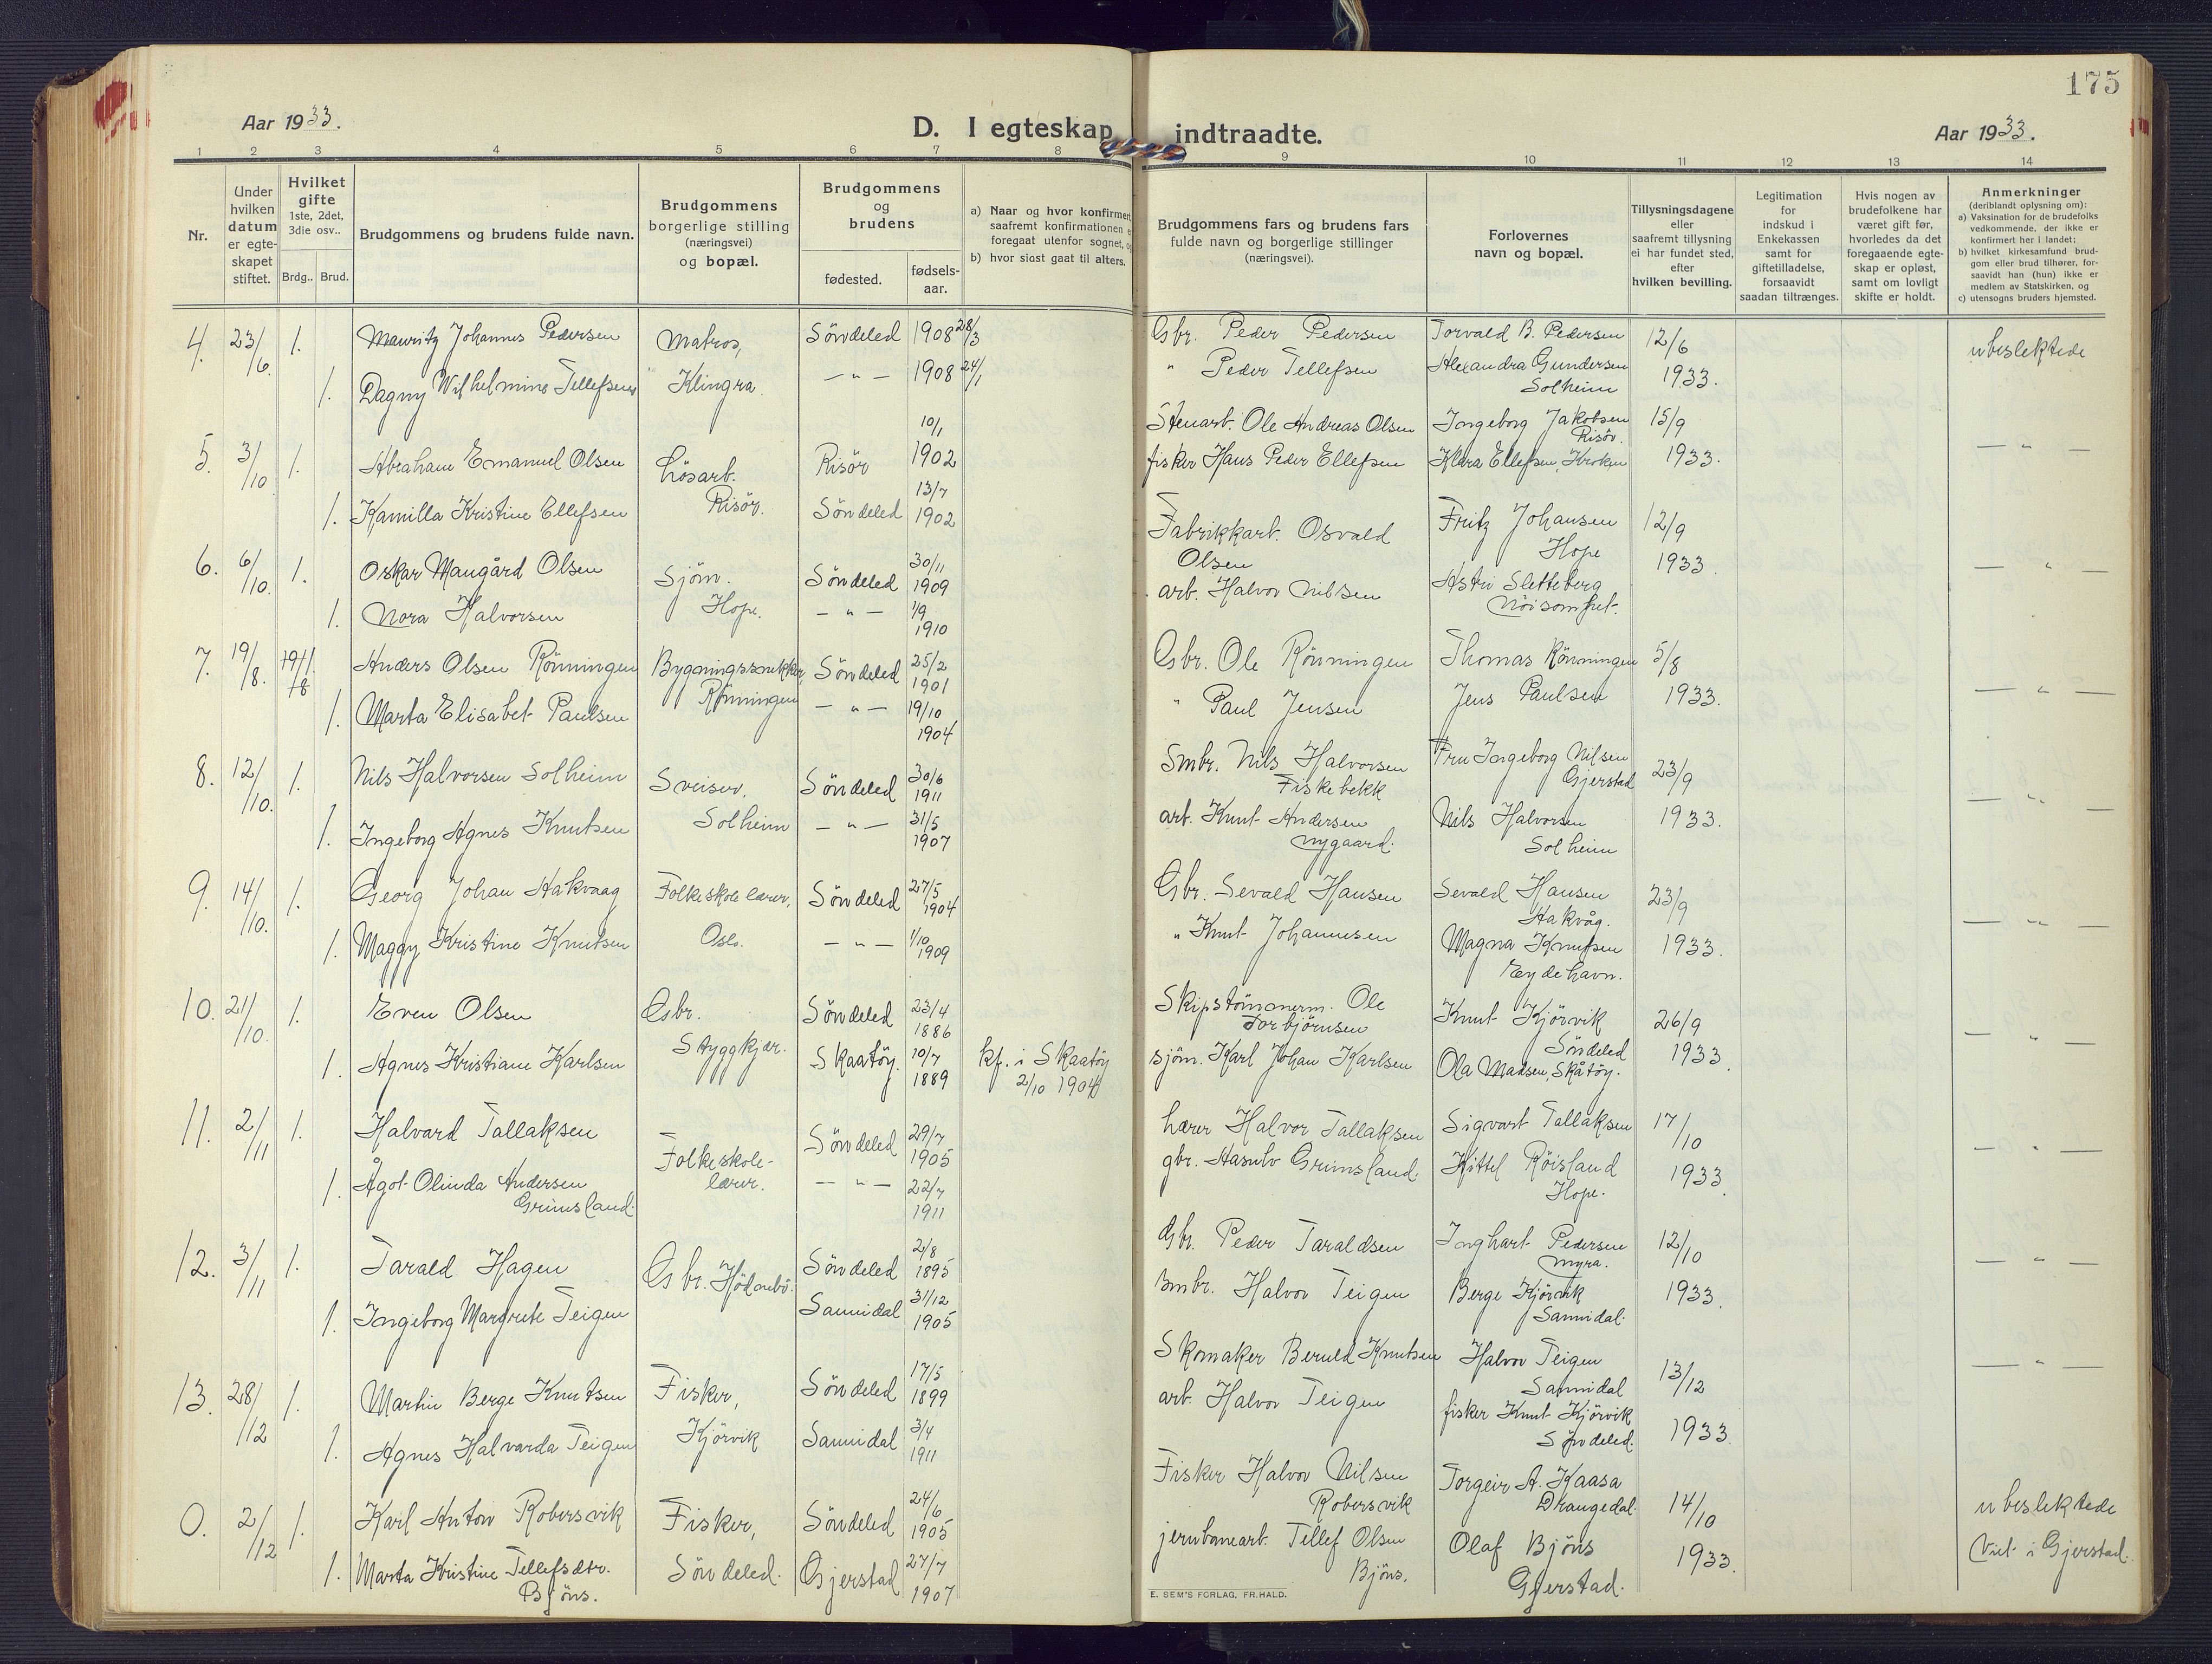 175
Aar 1933.
D. I egteskap indtraadte.
Aar 1933.
1 2 3 4 5 6 7 8 9 10 11 12 13 14
Nr.
Under hvilken datum er egte- skapet stiftet.
Hvilket gifte 1ste, 2det, 3die osv..
Brdg.. Brud.
Brudgommens og brudens fulde navn.
Brudgommens borgerlige stilling (næringsvei) og bopæl.
Brudgommens og brudens
fødested.
fødsels- aar.
a) Naar og hvor konfirmert, saafremt konfirmationen foregaat utenfor sognet,
b) hvor sidst gaat til alters.
Brudgommens fars og brudens fars fulde navn og borgerlige stillinger (næringsvei).
Forlovernes navn og bopæl.
Tillysningsdagene eller saafremt tillysning ei har fundet sted, efter hvilken bevilling.
Legitimation for indskud i Enkekassen samt for giftetilladelse, forsaavidt saadan tiltrænges.
Hvis nogen av brudefolkene har været gift før, hvorledes da det foregaaende egte- skap er opløst, samt om lovligt skifte er holdt.
Anmerkninger (deriblandt oplysning om):
a) Vaksination for de brudefolks vedkommende, der ikke er konfirmert her i landet;
b) hvilket kirkesamfund brud- gom eller brud tilhører, for- saavidt han (hun) ikke er medlem av Statskirken, og
c) utensogns bruders hjemsted.
4. 23/6. 1. Mauritz Johannes Pedersen Matros, Søndeled 1908 28/3 Gbr. Peder Pedersen Torvald B. Pedersen 12/6 ubeslektede
1. Dagny Wilhelmine Tellefsen Klingra. — " — 1908 24/1 " Peder Tellefsen Alexandra Gundersen Solheim 1933.
5. 3/10 1. Abraham Emanuel Olsen Løsarb. Risør 10/1 1902 Stenarb. Ole Andreas Olsen Ingeborg Jakobsen Risör. 15/9 — " —
1. Kamilla Kristine Ellefsen Risör. Söndeled 13/7 1902 fisker Hans Peder Ellefsen Klara Ellefsen, Kroken 1933.
6. 6/10. 1. Oskar Maugård Olsen Sjöm. Söndeled 30/11 1909 Fabrikkarb. Osvald Olsen Fritz Johansen Hope 12/9 1933. — " —
1. Nora Halvorsen Hope. — " — 1/9 1910 arb. Halvor Nilsen Astri Sletteberg
7. 19/8. 1. Anders Olsen Rönningen Bygningssnekker, Söndeled 25/2 1901 Gbr. Ole Rönningen Thomas Rönningen 5/8 — " —
1. Marta Elisabet Paulsen Rönningen — " — 19/10 1904 " Paul Jensen Jens Paulsen 1933.
8. 12/10. 1. Nils Halvorsen Solheim Sveiser. Söndeled 30/6 1911 Smbr. Nils Halvorsen Fiskebekk Fru Ingeborg Nilsen Gjerstad 23/9 — " —
1. Ingeborg Agnes Knutsen Solheim — " — 31/5 1907 arb. Knut Andersen Nygaard. Nils Halvorsen Solheim 1933.
9. 14/10. 1. Georg Johan Hakvaag Folkeskolelærer, Söndeled 27/5 1904 Gbr. Sevald Hansen Sevald Hansen Hakvåg. 23/9 — " —
1. Maggy Kristine Knutsen Oslo. — " — 1/10 1909 " Knut Johannesen Magna Knutsen Eydehavn. 1933.
10. 21/10. 1. Even Olsen Gbr. Söndeled 23/4 1886 Skipstömmerm. Ole Torbjörnsen Knut Kjörvik Söndeled 26/9 — " —
1. Agnes Kristiane Karlsen Styggkjær. Skaatöy. 10/7 1889 kf. i Skaatöy 2/10 1904 sjöm. Karl Johan Karlsen Ola Madsen, Skåtöy. 1933.
11. 2/11 1. Halvard Tallaksen Folkeskole- lærer. Söndeled 29/7 1905 Lærer Halvor Tallaksen Sigvart Tallaksen 17/10 — " —
1. Ågot Olinda Andersen Grimsland. — " — 22/7 1911 gbr. Aasulv Grimsland Kittel Röisland Hope. 1933.
12. 3/11 1. Tarald Hagen Gbr. Söndeled 2/8 1895 Gbr. Peder Taraldsen Inghart Pedersen Myra. 12/10 — " —
1. Ingeborg Margrete Teigen Sannidal 31/12 1905 smbr. Halvor Teigen Berge Kjörvik Sannidal. 1933.
13. 28/12 1. Martin Berge Knutsen Fisker, Söndeled 17/5 1899 Skomaker Beruld Knutsen Halvor Teigen Sannidal 13/12 — " —
1. Agnes Halvarda Teigen Kjörvik Sannidal 3/4 1911 arb. Halvor Teigen fisker Knut Kjörvik Söndeled. 1933.
0. 2/12 1. Karl Anton Robersvik Fisker, Söndeled 24/6 1905 Fisker Halvor Nilsen Robersvik Torgeir A. Kaasa Drangedal. 14/10 ubeslektede
1. Marta Kristine Tellefsdtr. Bjöns. Söndeled. Gjerstad 27/7 1907 jernbanearb. Tellef Olsen Bjöns. Olaf Bjöns Gjerstad. 1933. Viet i Gjerstad.
E. SEM'S FORLAG, FR.HALD.